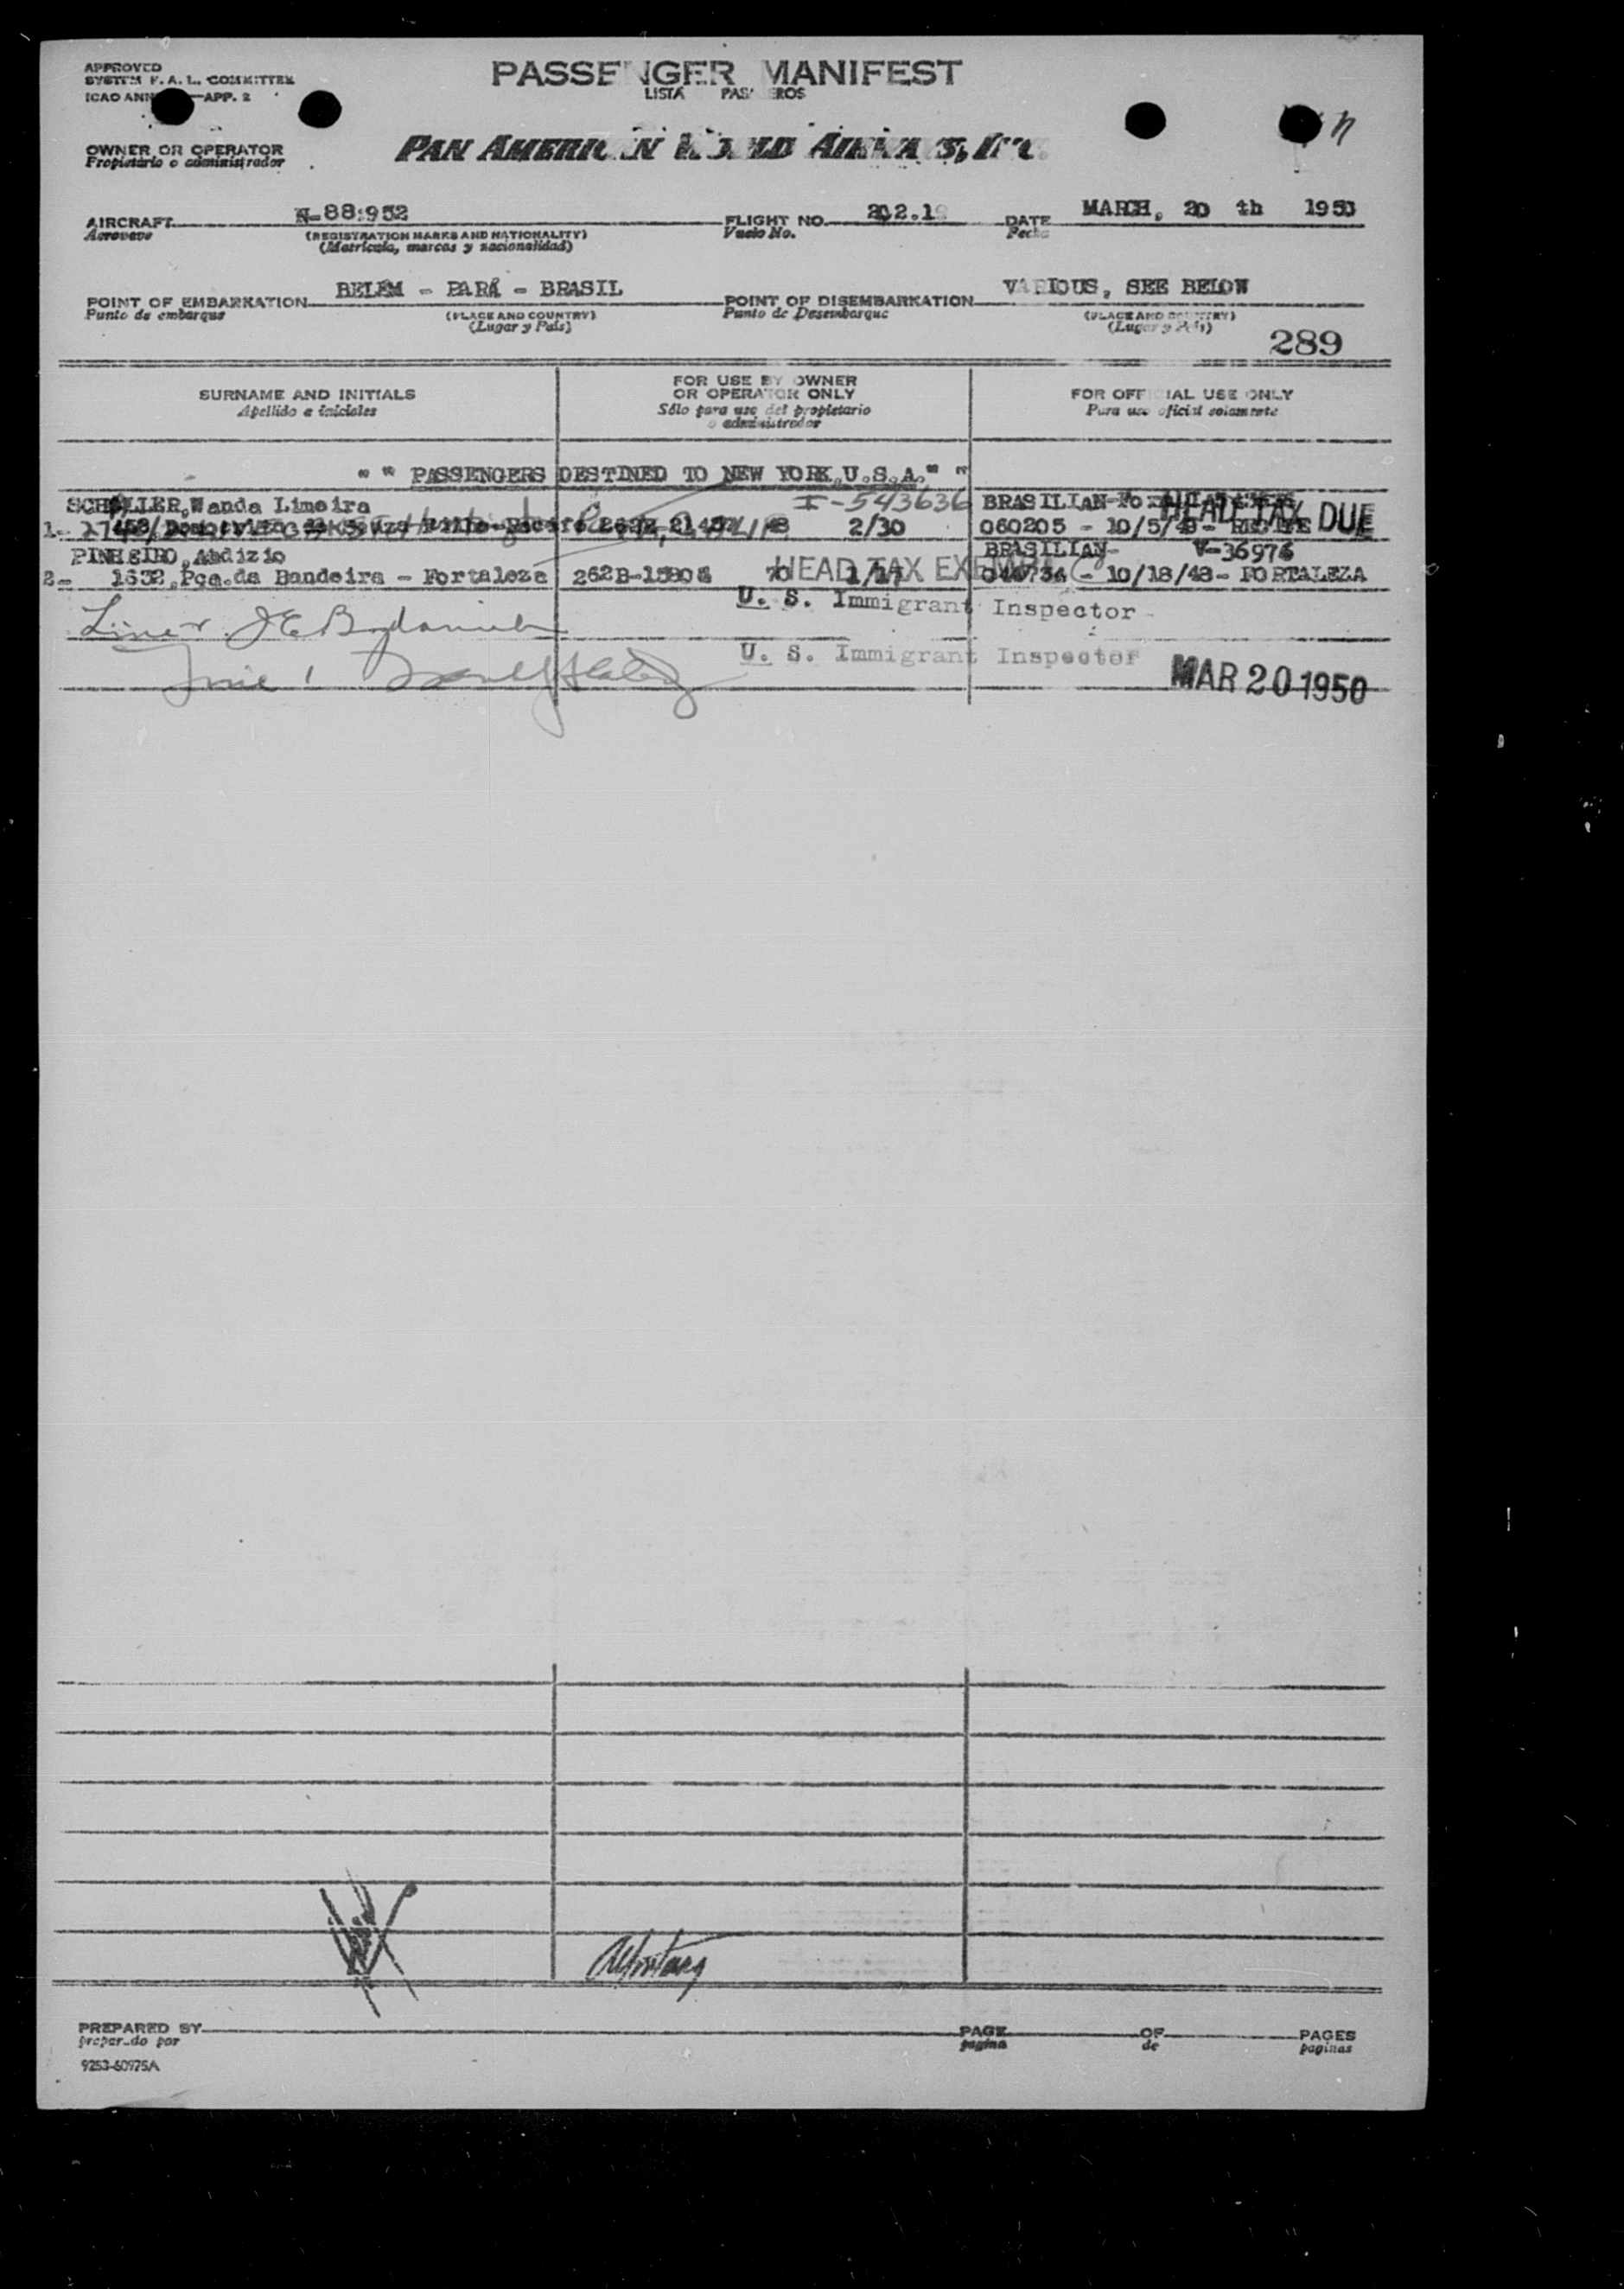 APPROVED
SYSTEM F. A. L. COMMITTEE
ICAO ANN APP. 2
PASSENGER MANIFEST
LISTA PASAJEROS
OWNER OR OPERATOR
Propietario o administrador
PAN AMERICAN WORLD AIRWAYS, INC.
AIRCRAFT N-88952
Aeronave
(REGISTRATION MARKS AND NATIONALITY)
(Matrícula, marcas y nacionalidad)
FLIGHT NO. 202.19
Vuelo No.
DATE MARCH, 20 th 1950
Fecha
POINT OF EMBARKATION BELEM - PARÁ - BRASIL
Punto de embarque
(PLACE AND COUNTRY)
(Lugar y País)
POINT OF DISEMBARKATION VARIOUS, SEE BELOW
Punto de Desembarque
(PLACE AND COUNTRY)
(Lugar y País)
289
SURNAME AND INITIALS
Apellido e iniciales
FOR USE BY OWNER
OR OPERATOR ONLY
Sólo para uso del propietario
o administrador
FOR OFFICIAL USE ONLY
Para uso oficial solamente
" " PASSENGERS DESTINED TO NEW YORK, U.S.A." "
SCHELLER, Wanda Limeira I-543636 BRASILIAN
1- 2/30 060205 - 10/5/48 - RECIFE
HEAD TAX DUE
PINHEIRO, Abdizio BRASILIAN- V-36976
2- 1632, Pça.da Bandeira - Fortaleza 262B-15805 70 1/17 - 10/18/48 - FORTALEZA
HEAD TAX EXEMPT
U. S. Immigrant Inspector
U. S. Immigrant Inspector
MAR 20 1950
PREPARED BY
preparado por
PAGE
pagina
OF
de
PAGES
paginas
9253-60975A